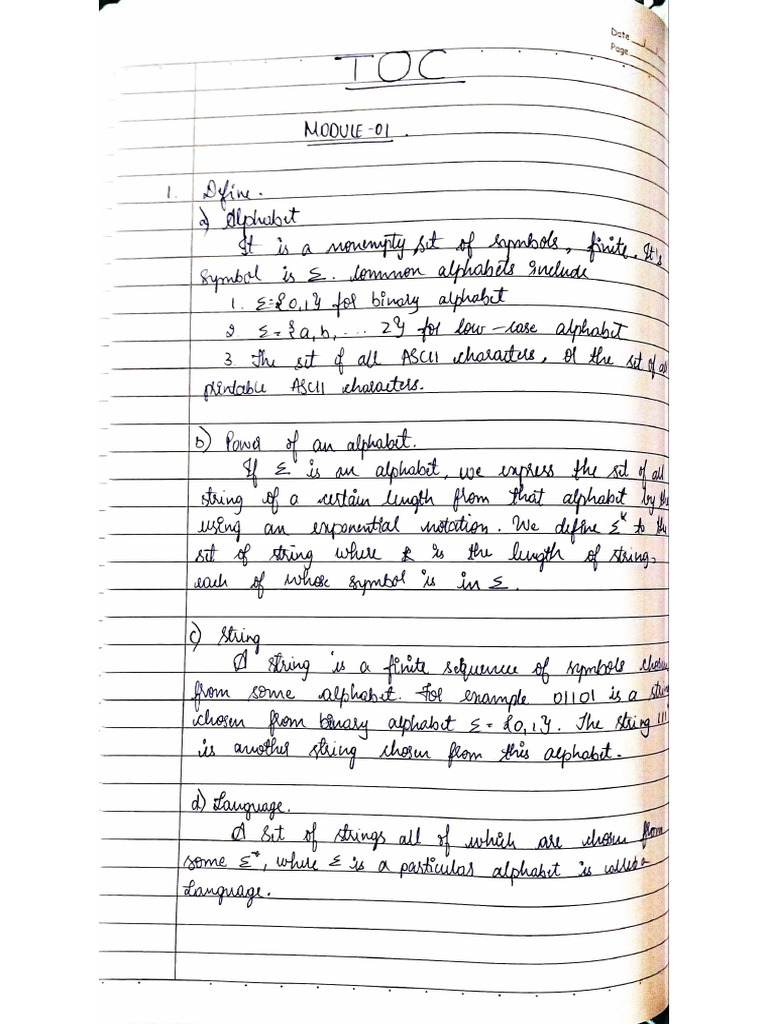 Date
Page
TOC
MODULE-01.
1. Define.
a) Alphabet
It is a nonempty set of symbols, finite. It's
symbol is Σ. Common alphabets include
1. Σ={0,1} for binary alphabet
2. Σ={a,b,... z} for low-case alphabet
3. The set of all ASCII characters, or the set of all
printable ASCII characters.
b) Power of an alphabet.
If Σ is an alphabet, we express the set of all
string of a certain length from that alphabet by the
using an exponential notation. We define Σᵏ to the
set of string where k is the length of string,
each of whose symbol is in Σ.
c) String
A string is a finite sequence of symbols chosen
from some alphabet. For example 01101 is a strin
chosen from binary alphabet Σ = {0,1}. The string 111
is another string chosen from this alphabet.
d) Language.
A set of strings all of which are chosen from
some Σ*, where Σ is a particular alphabet is called a
Language.